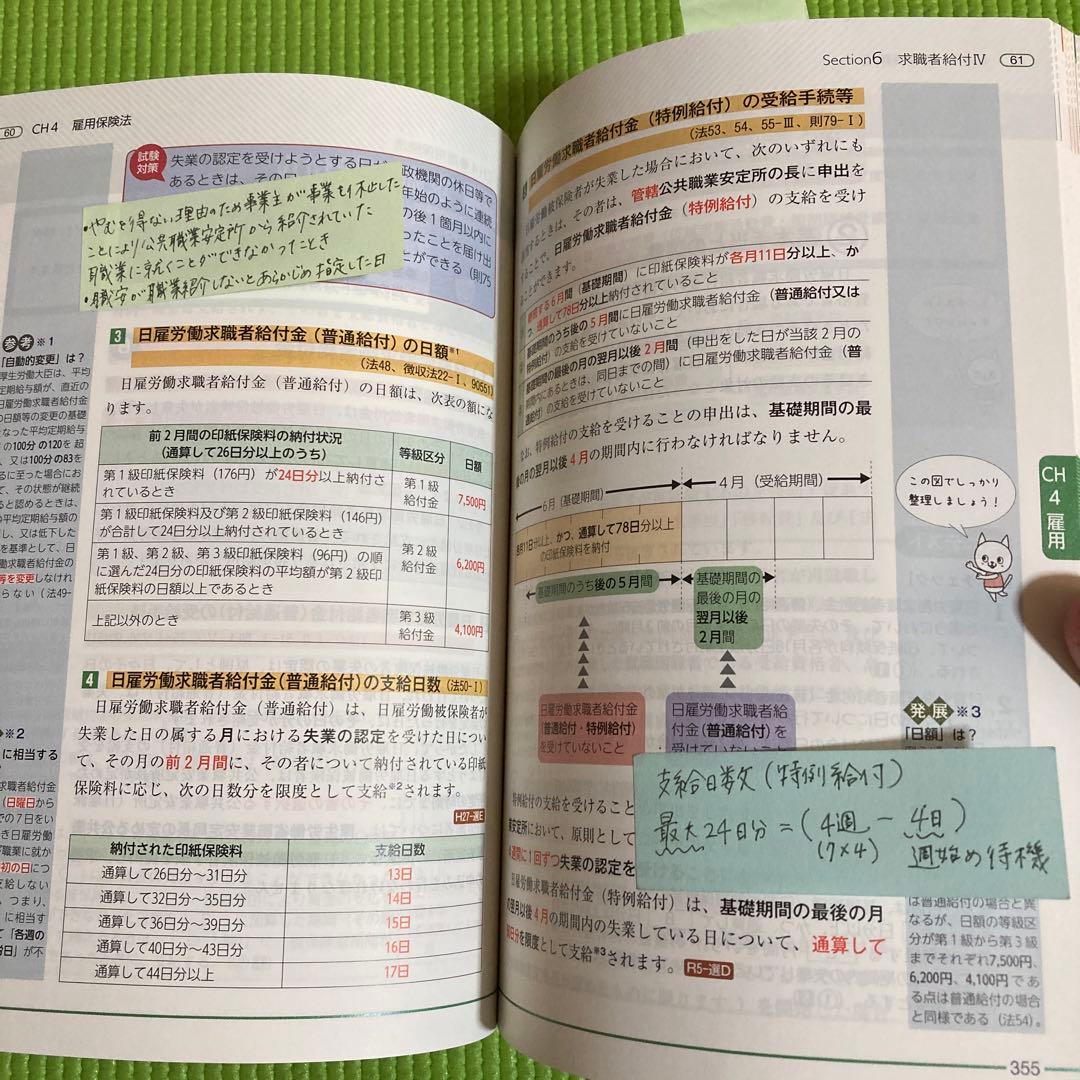 60 CH4 雇用保険法
試験対策
失業の認定を受けようとする日が
政機関の休日等で
あるときは、その日
年始のように連続
の後1箇月以内に
ったことを届け出
とができる(則75
・やむを得ない理由のため事業主が事業を休止した
ことにより公共職業安定所から紹介されていた
職業に就くことができなかったとき
・職安が職業紹介しないとあらかじめ指定した日
3 日雇労働求職者給付金(普通給付)の日額※1
(法48、徴収法22-Ⅰ、90551)
日雇労働求職者給付金(普通給付)の日額は、次表の額にな
ります。
前2月間の印紙保険料の納付状況
(通算して26日分以上のうち)
等級区分
日額
第1級印紙保険料(176円)が24日分以上納付さ
れているとき
第1級
給付金
7,500円
第1級印紙保険料及び第2級印紙保険料(146円)
が合計して24日分以上納付されているとき
第1級、第2級、第3級印紙保険料(96円)の順
に選んだ24日分の印紙保険料の平均額が第2級印
紙保険料の日額以上であるとき
第2級
給付金
6,200円
上記以外のとき
第3級
給付金
4,100円
4 日雇労働求職者給付金(普通給付)の支給日数(法50-Ⅰ)
日雇労働求職者給付金(普通給付)は、日雇労働被保険者が
失業した日の属する月における失業の認定を受けた日につい
て、その月の前2月間に、その者について納付されている印紙
保険料に応じ、次の日数分を限度として支給※2されます。
H27-選E
納付された印紙保険料 支給日数
通算して26日分~31日分 13日
通算して32日分~35日分 14日
通算して36日分~39日分 15日
通算して40日分~43日分 16日
通算して44日分以上 17日
参考※1
「自動的変更」は?
厚生労働大臣は、平均
定期給与額が、直近の
日雇労働求職者給付金
の日額等の変更の基礎
となった平均定期給与
の100分の120を超
、又は100分の83を
るに至った場合にお
て、その状態が継続
と認めるときは、
の平均定期給与額の
し、又は低下した
を基準として、日
働求職者給付金の
等を変更しなけれ
らない(法49-
※2
に相当する
求職者給付
(日曜日から
での7日をい
き日雇労働
が職業に就か
初の日につ
支給しない
つまり、
に相当す
て「各週の
日」が不
Section6 求職者給付Ⅳ 61
日雇労働求職者給付金(特例給付)の受給手続等
(法53、54、55-Ⅲ、則79-Ⅰ)
日雇労働被保険者が失業した場合において、次のいずれにも
するときは、その者は、管轄公共職業安定所の長に申出を
ることで、日雇労働求職者給付金(特例給付)の支給を受け
ことができます。
継続する6月間(基礎期間)に印紙保険料が各月11日分以上、か
つ、通算して78日分以上納付されていること
基礎期間のうち後の5月間に日雇労働求職者給付金(普通給付又は
特例給付)の支給を受けていないこと
基礎期間の最後の月の翌月以後2月間(申出をした日が当該2月の
期間内にあるときは、同日までの間)に日雇労働求職者給付金(普
通給付)の支給を受けていないこと
なお、特例給付の支給を受けることの申出は、基礎期間の最
後の月の翌月以後4月の期間内に行わなければなりません。
6月(基礎期間)
4月(受給期間)
各月11日分以上、かつ、通算して78日分以上
の印紙保険料を納付
基礎期間のうち後の5月間
基礎期間の
最後の月の
翌月以後
2月間
日雇労働求職者給付金
(普通給付・特例給付)
を受けていないこと
日雇労働求職者給
付金(普通給付)を
受けていないこと
この図でしっかり
整理しましょう!
CH4 雇用
支給日数(特例給付)
最大24日分=(4週-4日)
(7×4) 週始め待機
特例給付の支給を受けること
業安定所において、原則として
4週間に1回ずつ失業の認定を
日雇労働求職者給付金(特例給付)は、基礎期間の最後の月
の翌月以後4月の期間内の失業している日について、通算して
60日分を限度として支給※3されます。 R5-選D
発展※3
「日額」は?
は普通給付の場合と異
なるが、日額の等級区
分が第1級から第3級
までそれぞれ7,500円、
6,200円、4,100円であ
る点は普通給付の場合
と同様である(法54)。
355